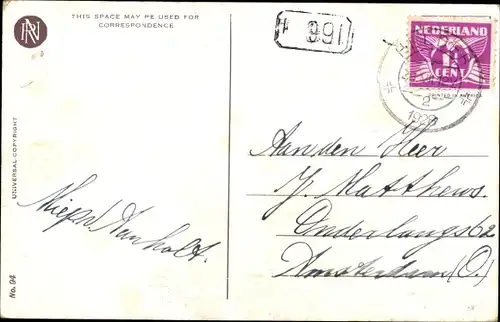 THIS SPACE MAY BE USED FOR
CORRESPONDENCE
UNIVERSAL COPYRIGHT
No. 94
166
NEDERLAND
1
CENT
2
1929
Aan den Heer
J. Matthews.
Onderlangs 62
Amsterdam (O.)